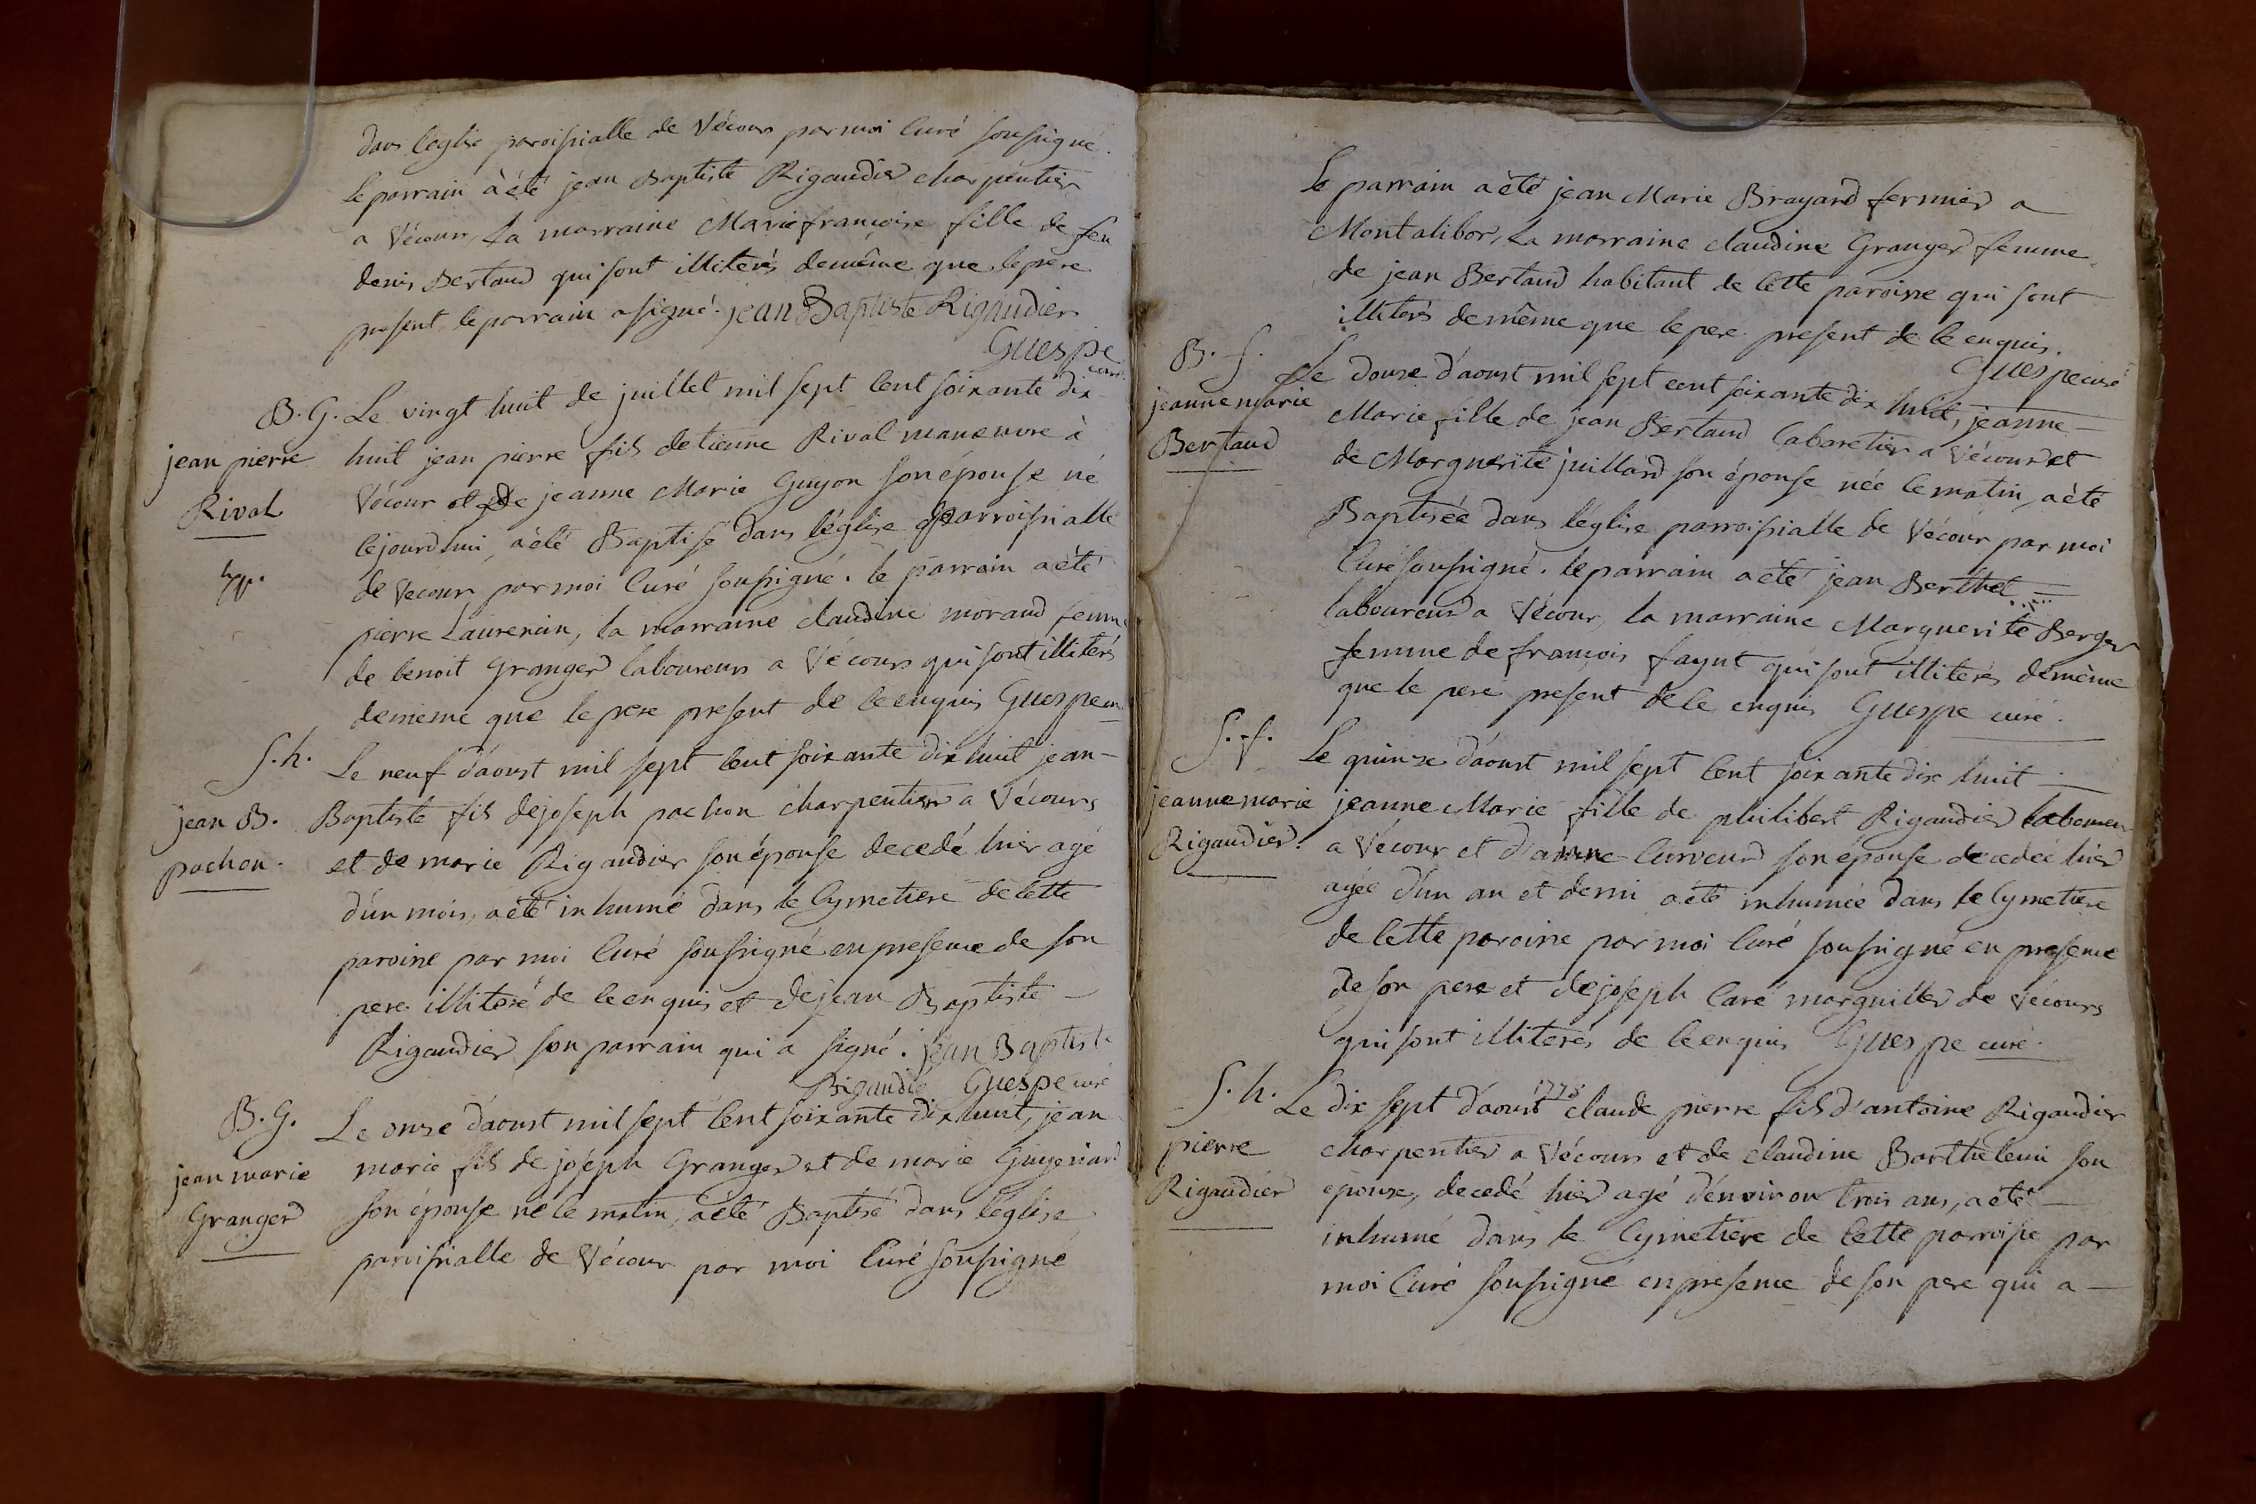 dans l'eglise paroissialle de Vécour par moi Curé soussigné.
le parrain à été jean Baptiste Rigaudier charpentier
a Vécour, la marraine Marie francoise fille de feu
denis Bertaud qui sont illiterés demême que le pere
present, le parrain a signé. jean Baptiste Rigaudier
Guespe
curé
B. G. Le vingt huit de juillet mil sept Cent soixante dix
jean pierre huit jean pierre fils detienne Rival manœuvre à
Rival Vécour et de jeanne Marie Guyon son épouse né
cejourdhui, a été Baptisé dans l'église parroissialle
de Vecour par moi Curé soussigné. le parrain a été
pierre Laurencin, la marraine claudine morand femme
de benoit Granger laboureurs a Vécours qui sont illiterés
demême que le pere present de ce enquis Guespe curé
S. h. Le neuf d'aoust mil sept Cent soixante dix huit jean
jean B. Baptiste fils de joseph pachon charpentier a Vécours
pachon. et de marie Rigaudier son épouse decedé hier agé
d'un mois, a été inhumé dans le Cymetiere de Cette
paroisse par moi Curé soussigné en presence de son
pere illiteré de ce enquis et de jean Baptiste
Rigaudier son parrain qui a signé. jean Baptiste
Rigaudie Guespe curé
B. G. Le onze d'aoust mil sept Cent soixante dix huit, jean
jean marie marie fils de joseph Granger et de marie Guyenard
Granger son épouse né ce matin, a été Baptisé dans l'église
paroissialle de Vécour par moi Curé soussigné
Le parrain a été jean Marie Brayard fermier a
Montalibor, la marraine claudine Granger femme
de jean Bertaud habitant de Cette paroisse qui sont
illiterés demême que le pere present de ce enquis.
Guespe curé
B. f. Le douze d'aoust mil sept cent soixante dix huit, jeanne
jeanne marie Marie fille de jean Bertaud Cabaretier a Vécour et
Bertaud de Marguerite juillard son épouse née ce matin, a été
Baptisée dans l'église parroissialle de Vécour par moi
Curé soussigné. le parrain a été jean Berthet
laboureur a Vécour, la marraine Marguerite Berger
femme de francois fayut qui sont illiterés demême
que le pere present de ce enquis Guespe curé.
S. f. Le quinze d'aoust mil sept Cent soixante dix huit
jeanne marie jeanne Marie fille de philibert Rigaudier laboureur
Rigaudier. a Vécour et d'anne Curveur son épouse decedée hier
agée d'un an et demi a été inhumée dans le Cymetiere
de Cette paroisse par moi Curé soussigné en presence
de son pere et de joseph Caré marguiller de Vécours
qui sont illiterés de ce enquis Guespe curé.
S. h. Le dix sept d'aoust 1778 claude pierre fils d'antoine Rigaudier
pierre charpentier a Vécours et de claudine Barthelemi son
Rigaudier epouse, decedé hier agé d'environ trois ans, a été
inhumé dans le Cymetiere de Cette parroisse par
moi Curé soussigné en presence de son pere qui a